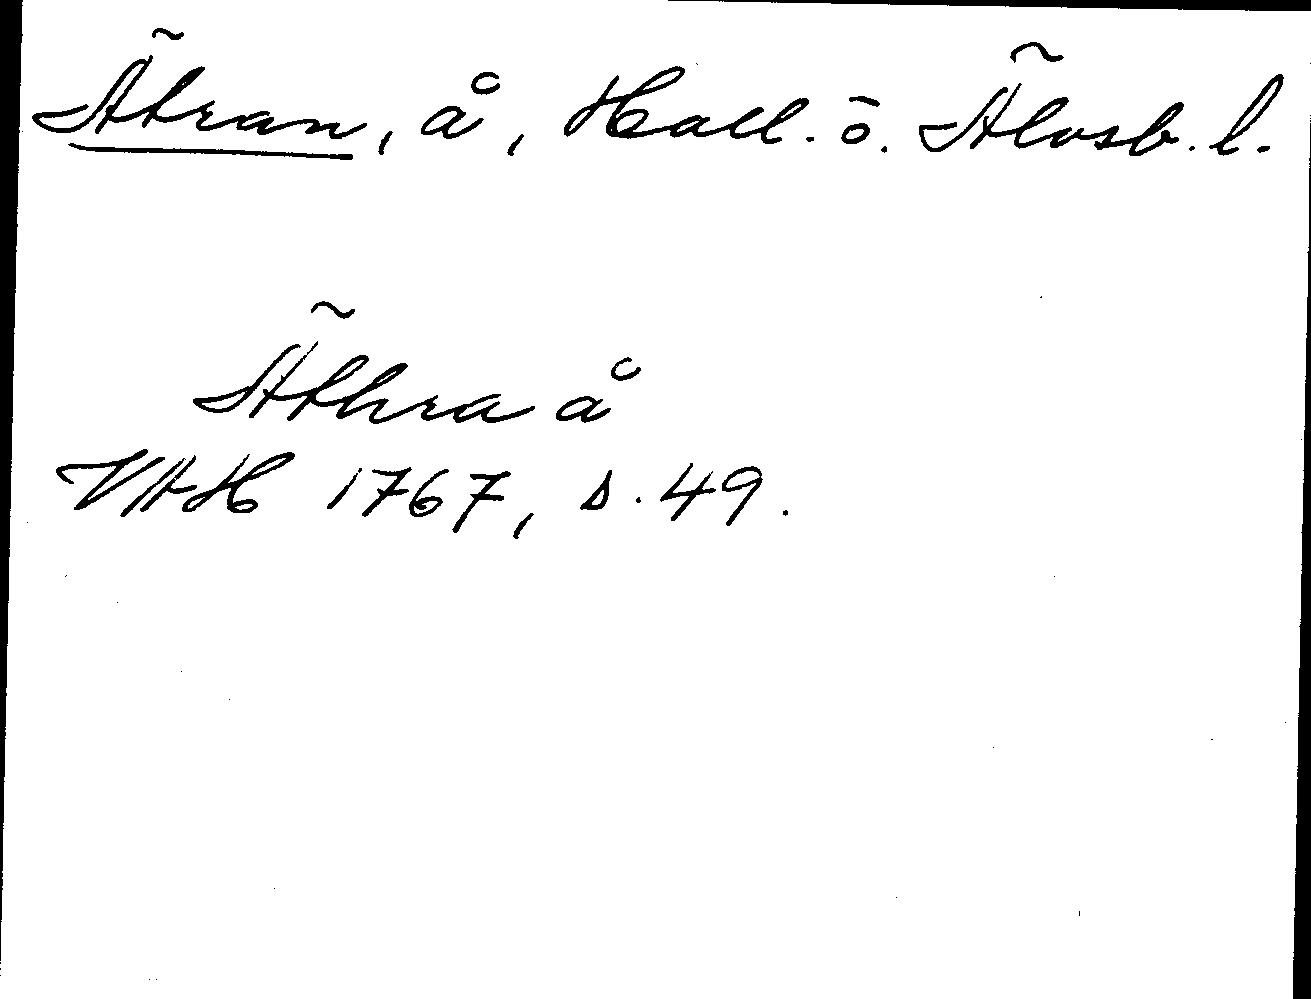 Ätran, å, Hall. o. Älvsb. l.
Äthra å
VAH 1767, s. 49.